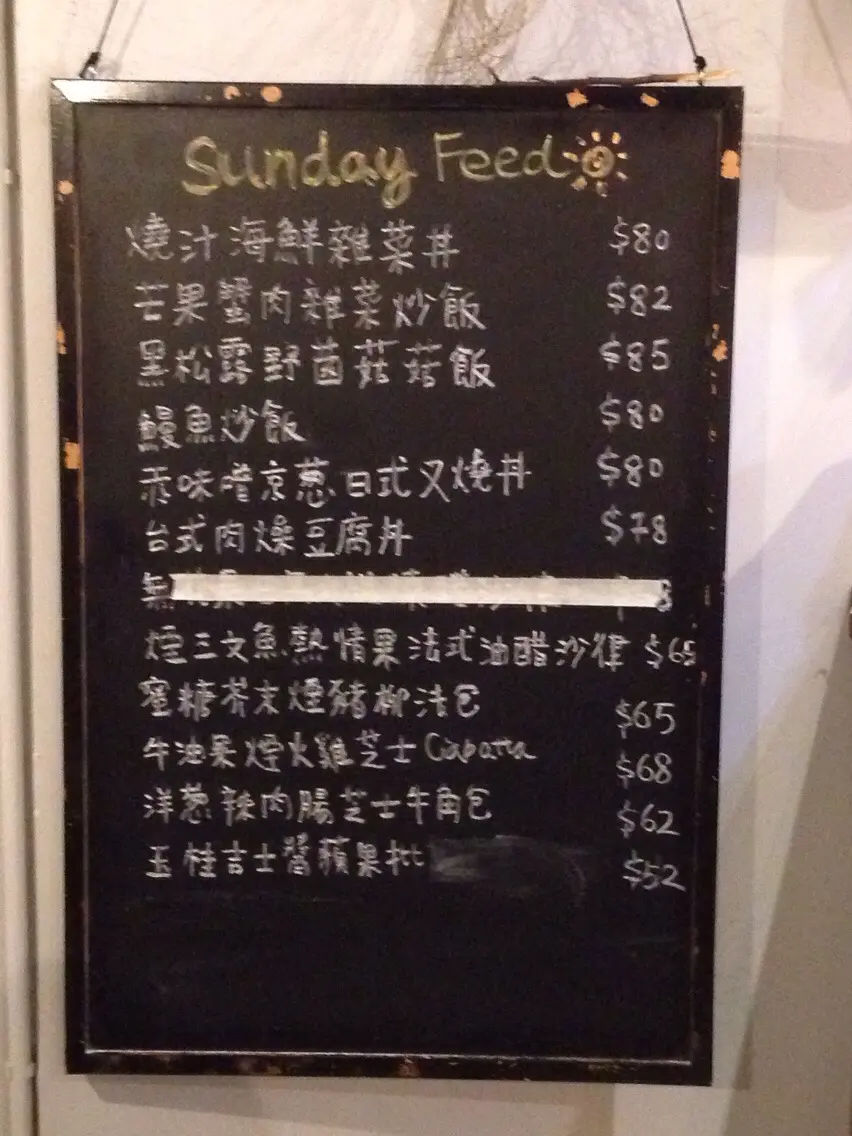 Sunday Feed
燒汁海鮮雜菜丼 $80
芒果蟹肉雜菜炒飯 $82
黑松露野茵菇菇飯 $85
鰻魚炒飯 $80
味噌京蔥日式叉燒丼 $80
台式肉燥豆腐丼 $78
無
煙三文魚熱情果法式油醋沙律 $65
蜜糖芥末煙豬柳法包 $65
牛油果煙火雞芝士 Ciabatta $68
洋蔥辣肉腸芝士牛角包 $62
玉桂吉士醬蘋果批 $52